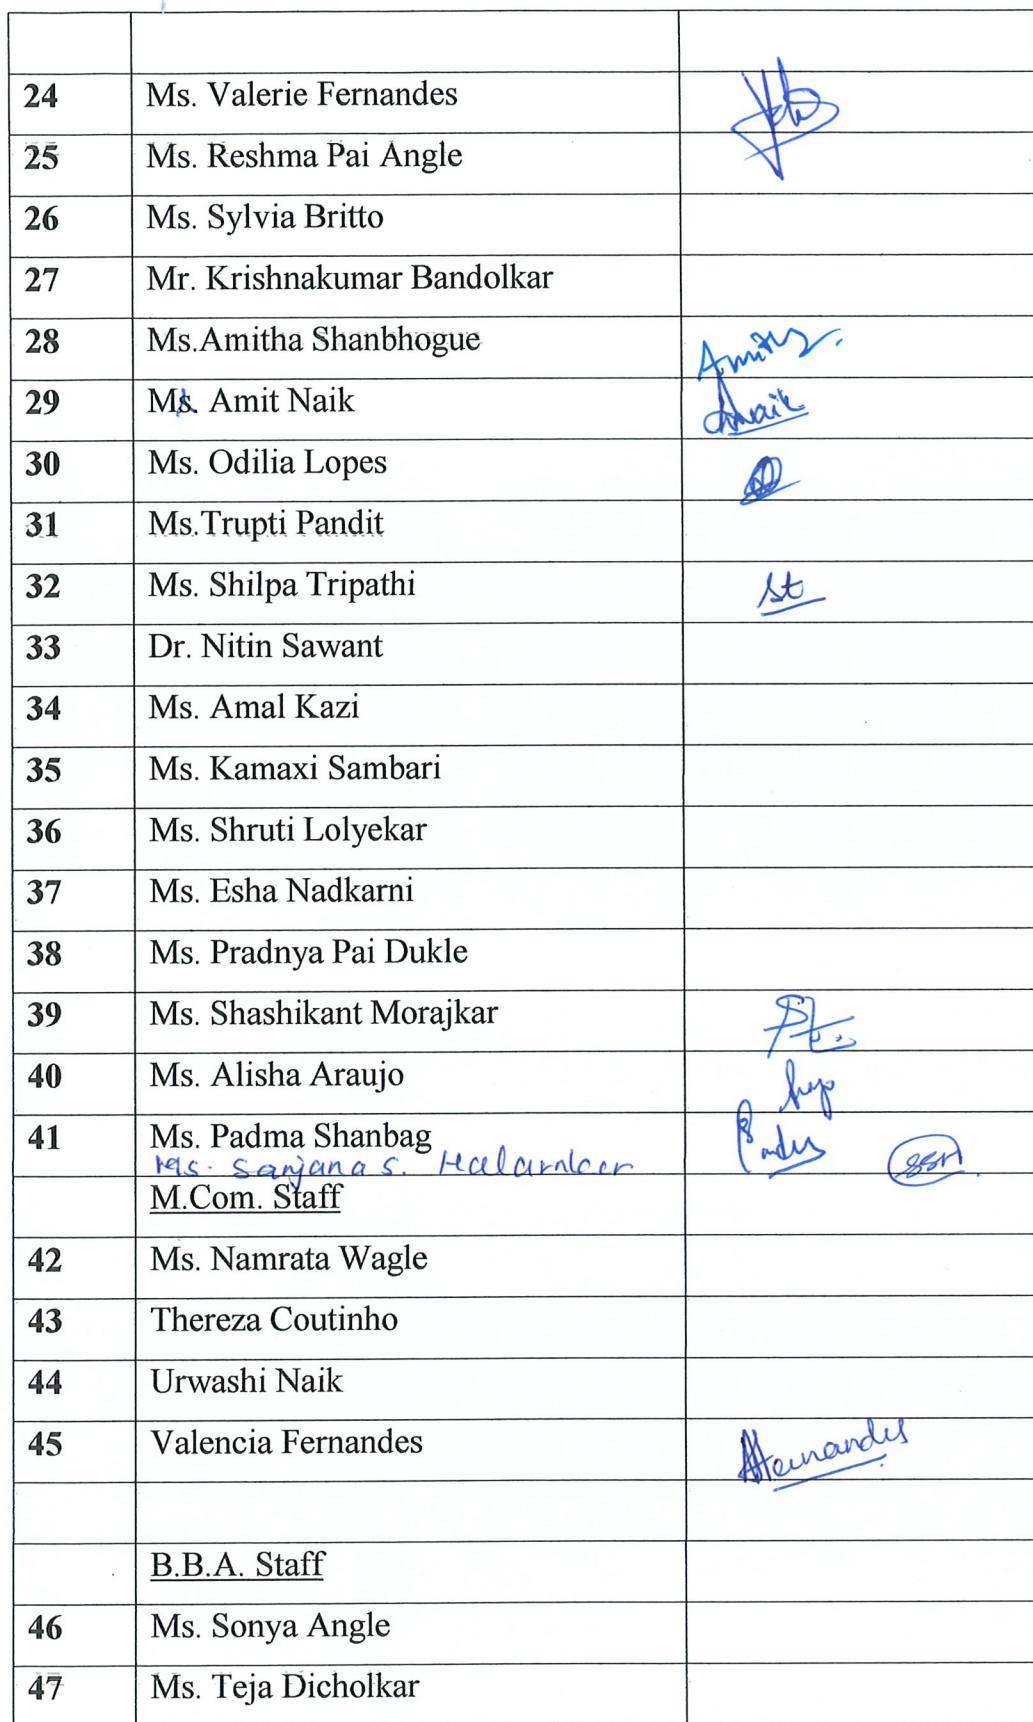 24 Ms. Valerie Fernandes
25 Ms. Reshma Pai Angle
26 Ms. Sylvia Britto
27 Mr. Krishnakumar Bandolkar
28 Ms.Amitha Shanbhogue Amitha
29 Ms. Amit Naik Anaik
30 Ms. Odilia Lopes
31 Ms.Trupti Pandit
32 Ms. Shilpa Tripathi St
33 Dr. Nitin Sawant
34 Ms. Amal Kazi
35 Ms. Kamaxi Sambari
36 Ms. Shruti Lolyekar
37 Ms. Esha Nadkarni
38 Ms. Pradnya Pai Dukle
39 Ms. Shashikant Morajkar
40 Ms. Alisha Araujo
41 Ms. Padma Shanbag
Ms. Sanjana S. Halarnkar SSH
M.Com. Staff
42 Ms. Namrata Wagle
43 Thereza Coutinho
44 Urwashi Naik
45 Valencia Fernandes Fernandes
B.B.A. Staff
46 Ms. Sonya Angle
47 Ms. Teja Dicholkar